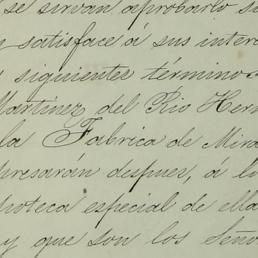 se sirvan aprobarlo si
satisface á sus intere
siguientes términos
Martinez del Rio Herm
la Fabrica de Mira
presarán despues, á lo
poteca especial de ella
y que son los Seño